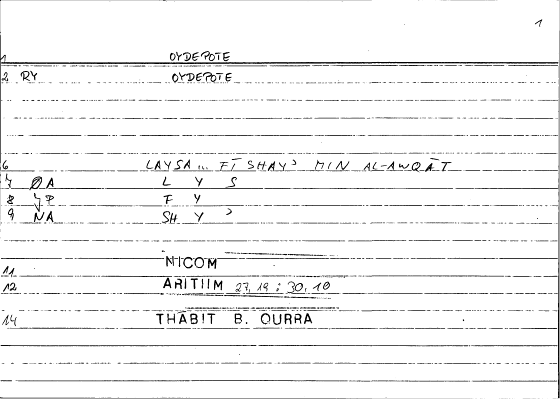 1
1 OYDEPOTE
2 RY OYDEPOTE
6 LAYSA... FĪ SHAYʾ MIN AL-AWQĀT
7 ØA L Y S
8 JP F Y
9 NA SH Y ʾ
11 NICOM
12 ARITIIM 27,19 ; 30,10
14 THĀBIT B. QURRA